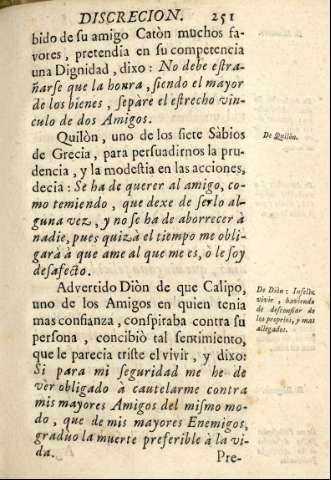 DISCRECION. 251
bido de su amigo Catòn muchos fa-
vores, pretendia en su competencia
una Dignidad, dixo: No debe estra-
ñarse que la honra, siendo el mayor
de los bienes, sepàre el estrecho vin-
culo de dos Amigos.
Quilòn, uno de los siete Sàbios
de Grecia, para persuadirnos la pru-
dencia, y la modestia en las acciones,
decia: Se ha de querer al amigo, co-
mo temiendo, que dexe de serlo al-
guna vez, y no se ha de aborrecer à
nadie, pues quizà el tiempo me obli-
garà à que ame al que me es, ò le soy
desafecto.
De Quilòn.
Advertido Diòn de que Calipo,
uno de los Amigos en quien tenia
mas confianza, conspiraba contra su
persona, concibiò tal sentimiento,
que le parecia triste el vivir, y dixo:
Si para mi seguridad me he de
ver obligado à cautelarme contra
mis mayores Amigos del mismo mo-
do, que de mis mayores Enemigos,
graduo la muerte preferible à la vi-
da.
De Diòn: Infeliz
vivir, haviendo
de desconfiar de
los propios, y mas
allegados.
Pre-